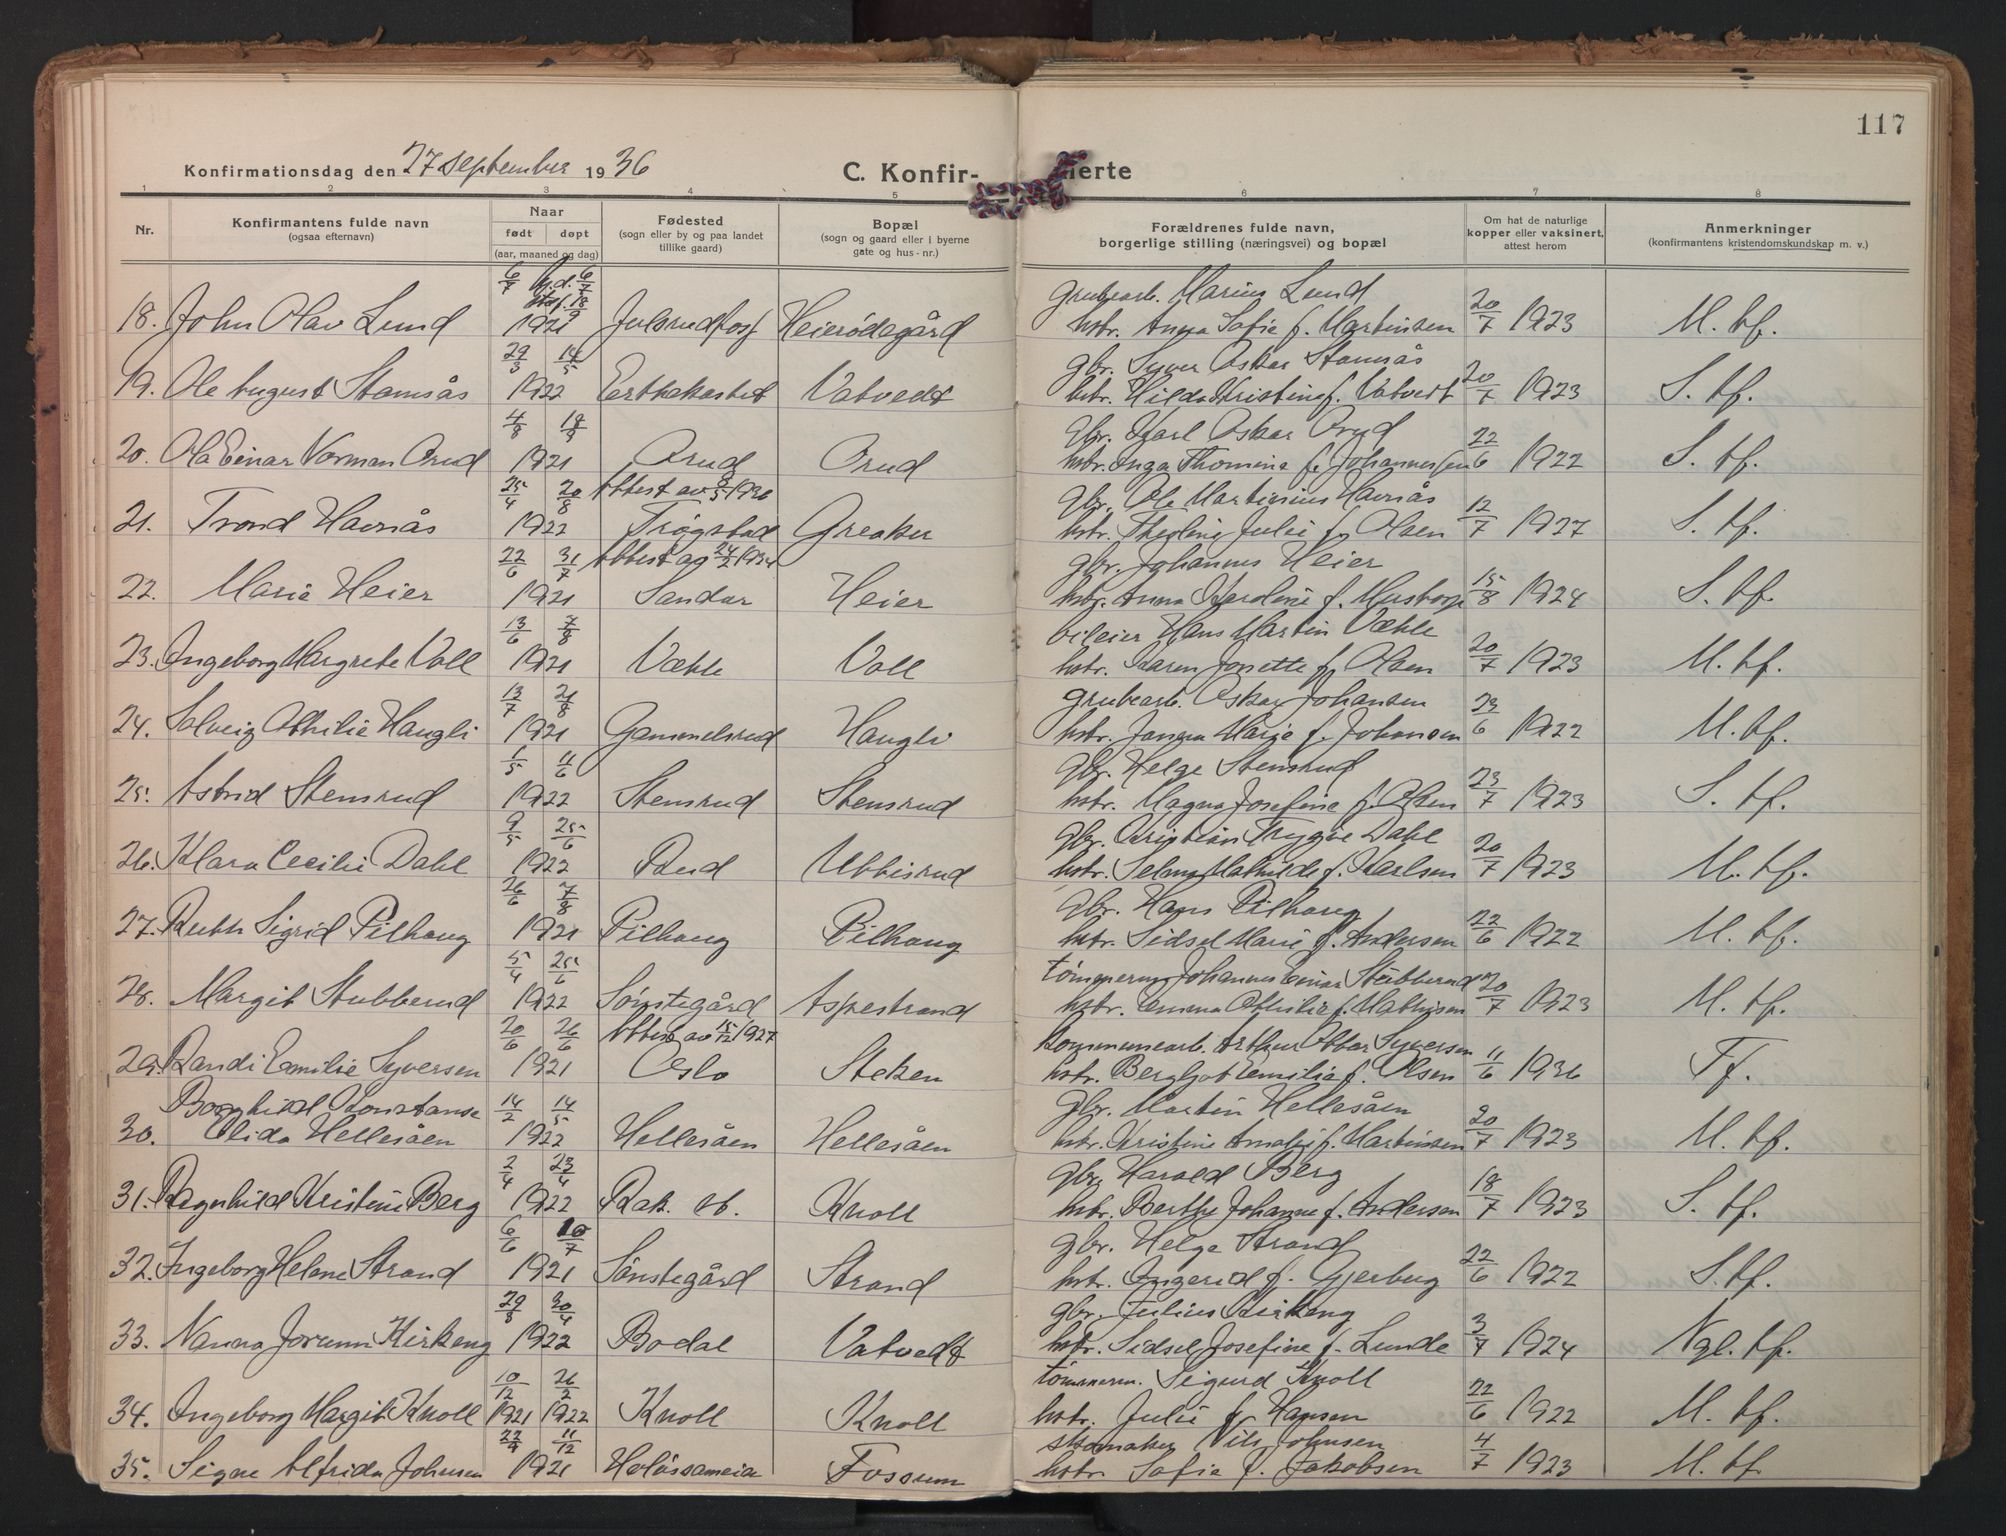 117
Konfirmationsdag den 27 september 1936
C. Konfir- merte
1 2 3 4 5 6 7 8
Nr.
Konfirmantens fulde navn
(ogsaa efternavn)
Naar
født døpt
(aar, maaned og dag)
Fødested
(sogn eller by og paa landet
tillike gaard)
Bopæl
(sogn og gaard eller i byerne
gate og hus-nr.)
Forældrenes fulde navn,
borgerlige stilling (næringsvei) og bopæl
Om hat de naturlige
kopper eller vaksinert,
attest herom
Anmerkninger
(konfirmantens kristendomskundskap m. v.)
6/7 6/7 18/9 grubearb. Marius Lund
18. John Olav Lund 1921 Julsrudfoss Heierødegård hstr. Anna Sofie f. Martinsen 20/7 1923 M. tf.
29/3 14/5 gbr. Syver Oskar Stamsås
19. Ole August Stamsås 1922 Vatvedt hstr. Hilda Kristine f. Vatvedt 20/7 1923 S. tf.
4/8 18/9 gbr. Karl Oskar Orud
20. Ola Einar Norman Orud 1921 Orud Orud hstr. Inga Thomine f. Johannessen 22/6 1922 S. tf.
25/4 20/8 Attest av 8/5 1936 gbr. Ole Martinius Havnås
21. Trond Havnås 1922 Trøgstad Greaker hstr. Theoline Julie f. Olsen 12/7 1927 S. tf.
22/6 31/7 Attest av 24/2 1934 gbr. Johannes Heier
22. Marie Heier 1921 Sandar Heier hstr. Anna Karoline f. 15/8 1924 S. tf.
13/6 7/8 bileier Hans Martin Vækle
23. Ingeborg Margrete Voll 1921 Vækle Voll hstr. Karen Josette f. Olsen 20/7 1923 M. tf.
13/7 21/8 grubearb. Oskar Johansen
24. Solveig Othilie Haugli 1921 Gammelsrud Haugli hstr. Janna Marie f. Johansen 23/6 1922 M. tf.
1/5 11/6 gbr. Helge Stensrud
25. Astrid Stensrud 1922 Stensrud Stensrud hstr. Magna Josefine f. Olsen 23/7 1923 S. tf.
9/5 25/6 gbr. Kristian Trygve Dahl
26. Klara Cecilie Dahl 1922 Rud Ubbisrud hstr. Selma Mathilde f. Karlsen 20/7 1923 M. tf.
26/6 7/8 gbr. Hans Pilhaug
27. Ruth Sigrid Pilhaug 1921 Pilhaug Pilhaug hstr. Sidsel Marie f. Andersen 22/6 1922 M. tf.
5/4 25/6 tömmerm. Johannes Einar Stubberud
28. Margit Stubberud 1922 Sönstegård Aspestrand hstr. Emma Othilie f. Mathisen 20/7 1923 M. tf.
20/6 26/6 Attest av 15/12 1927 kommunearb. Arthur Ottar Syversen
29. Randi Emilie Syversen 1921 Oslo Steken hstr. Bergljot Emilie f. Olsen 11/6 1936 Tf.
Borghild Konstanse 14/2 14/5 gbr. Martin Hellesåen
30. Elida Hellesåen 1922 Hellesåen Hellesåen hstr. Kristine Amalie f. Martinsen 20/7 1923 M. tf.
2/4 23/4 gbr. Harald Berg
31. Ragnhild Kristine Berg 1922 Rak. st. Knoll hstr. Berthe Johanne f. Andersen 18/7 1923 S. tf.
6/6 10/7 gbr. Helge Strand
32. Ingeborg Helene Strand 1921 Sönstegård Strand hstr. Ingerid f. Gjerberg 22/6 1922 S. tf.
29/8 30/4 gbr. Julius Kirkeng
33. Nanna Jorunn Kirkeng 1922 Bodal Vatvedt hstr. Sidsel Josefine f. Lunde 3/7 1924 Ngl. tf.
10/12 26/2 tömmerm. Sigurd Knoll
34. Ingeborg Margit Knoll 1921 1922 Knoll Knoll hstr. Julie f. Hansen 22/6 1922 M. tf.
22/9 11/12 skomaker Nils Johnsen
35. Signe Alfrida Johnsen 1921 Fossum hstr. Sofie f. Jakobsen 4/7 1923 M. tf.